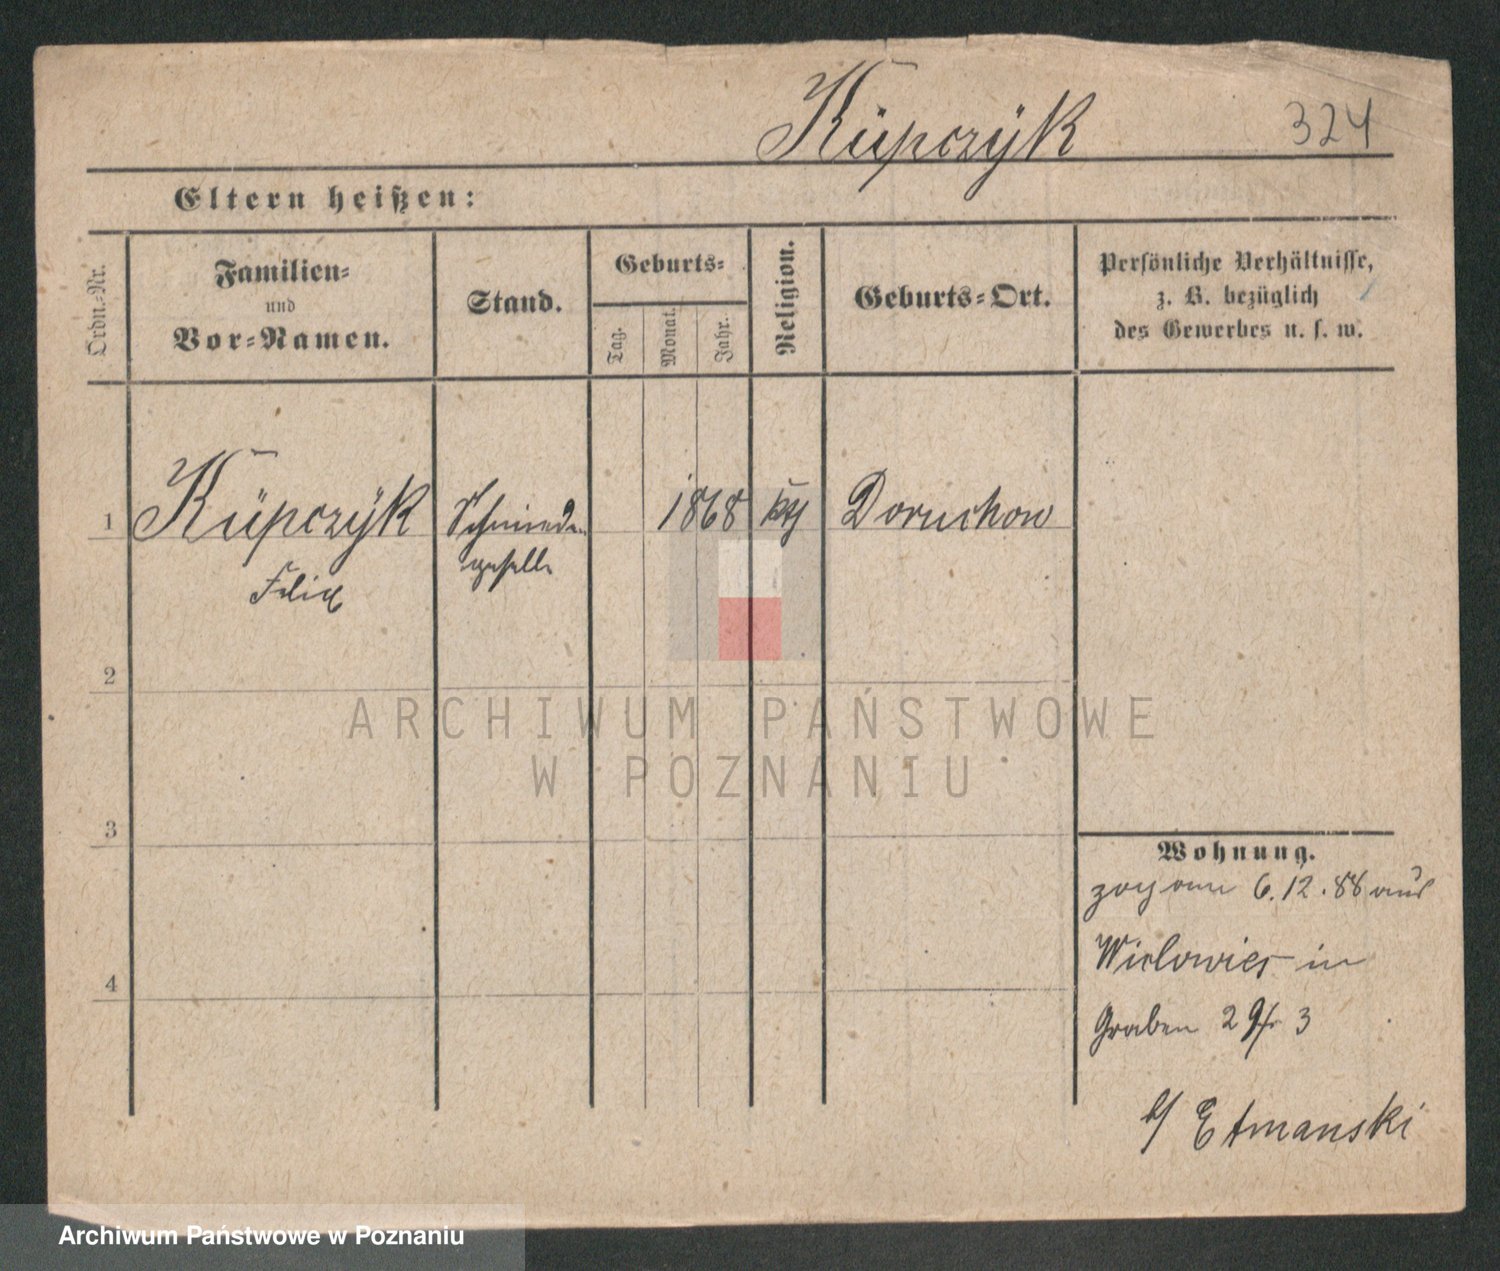 Kŭpczÿk
324
Eltern heißen:
Ordn.-Nr.
Familien-
und
Vor-Namen.
Stand.
Geburts-
Tag.
Monat.
Jahr.
Religion.
Geburts-Ort.
Persönliche Verhältnisse,
z. B. bezüglich
des Gewerbes u. s. w.
1 Kŭpczÿk Schmiede- 1868 kth Doruchow
Felix geselle
2
3
4
Wohnung.
zog am 6.12.88 aus
Wielowies in
Graben 29 3
b/ Etmanski
ARCHIWUM PAŃSTWOWE
W POZNANIU
Archiwum Państwowe w Poznaniu